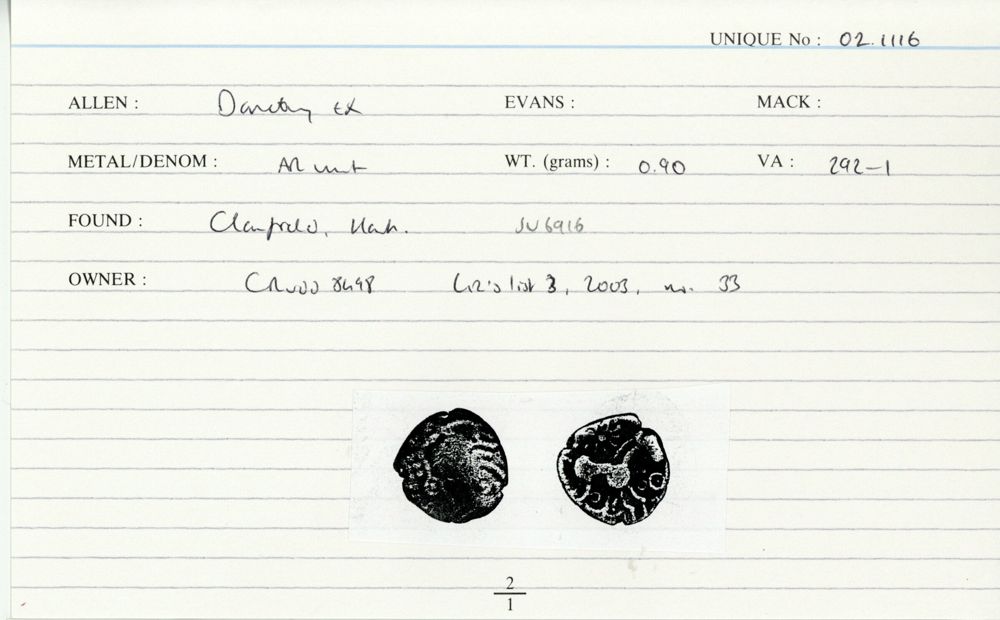 UNIQUE No : 02.1116
ALLEN : Danebury EX EVANS : MACK :
METAL/DENOM : AR unit WT. (grams) : 0.90 VA : 292-1
FOUND : Clanfield, Hants. SU6916
OWNER : CR 8498 Liz's list 3, 2003, no. 33
2
1